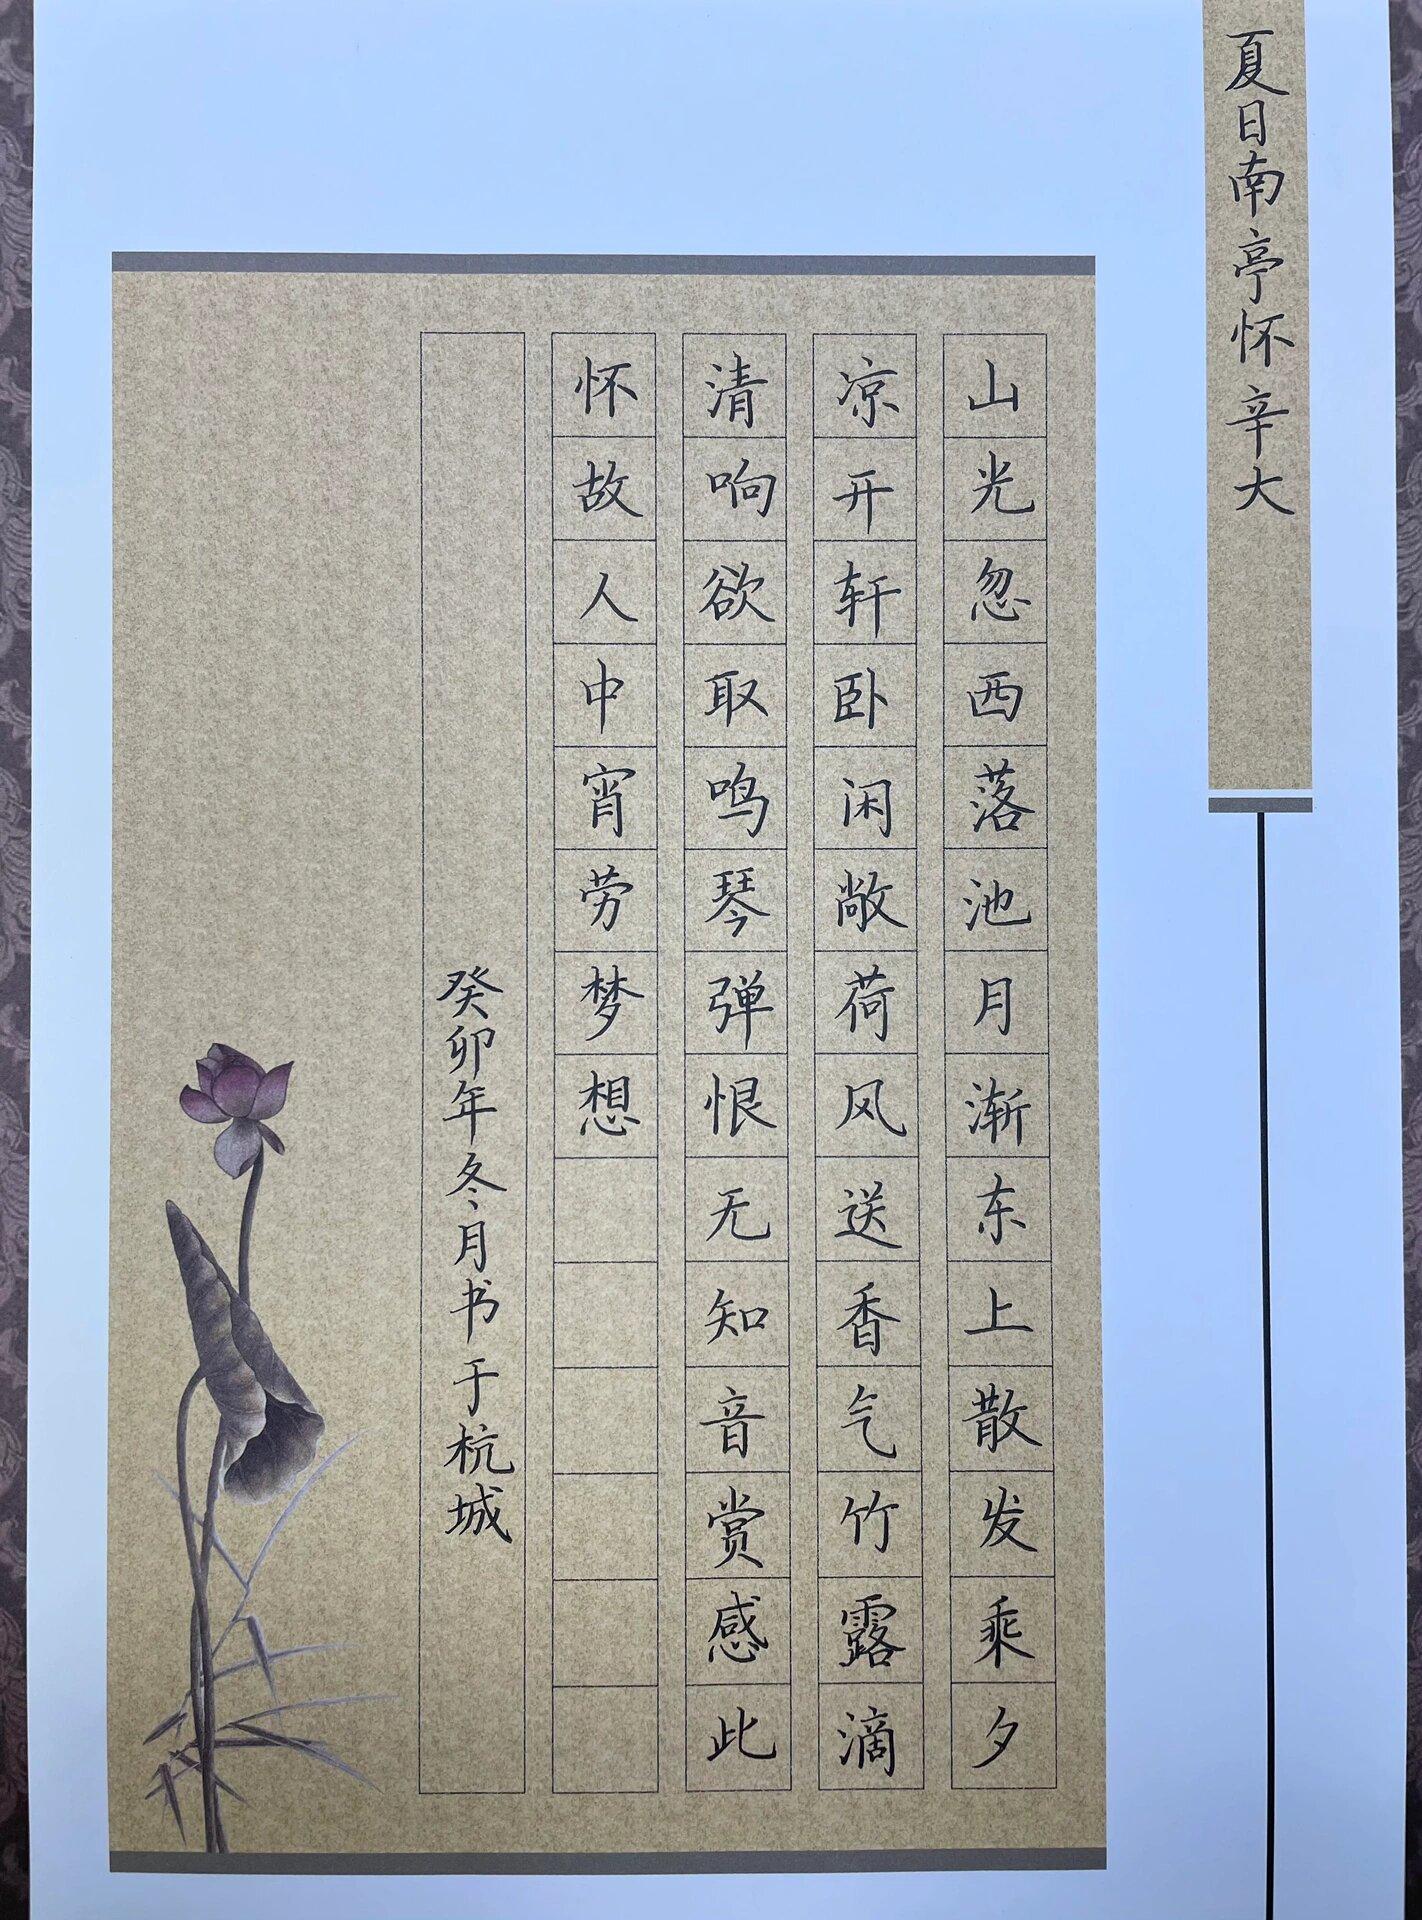 夏日南亭怀辛大
山光忽西落池月渐东上散发乘夕
凉开轩卧闲敞荷风送香气竹露滴
清响欲取鸣琴弹恨无知音赏感此
怀故人中宵劳梦想
癸卯年冬月书于杭城